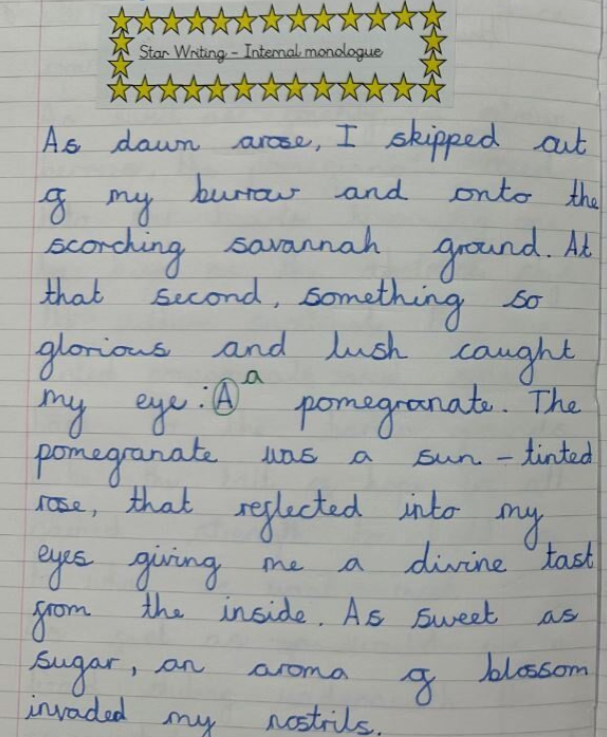 Star Writing - Internal monologue
As dawn arose, I skipped out
of my burrow and onto the
scorching savannah ground. At
that second, something so
glorious and lush caught
my eye: A a pomegranate. The
pomegranate was a sun - tinted
rose, that reflected into my
eyes giving me a divine tast
from the inside. As sweet as
sugar, an aroma of blossom
invaded my nostrils.